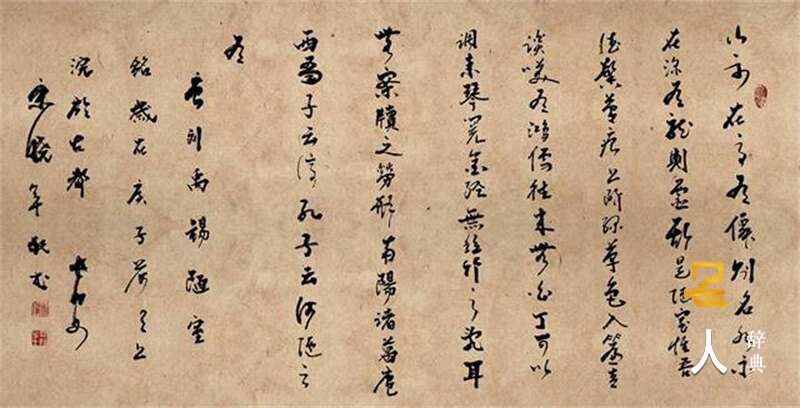 山不在高有僊則名水不
在深有龍則靈斯是陋室惟吾
德馨苔痕上階綠草色入簾青
談笑有鴻儒往來無白丁可以
調素琴閱金經無絲竹之亂耳
無案牘之勞形南陽諸葛廬
西蜀子云亭孔子云何陋之
有
刘禹錫陋室
銘歲在庚子荷月上
浣於古都長安
年敬书
人
辞典